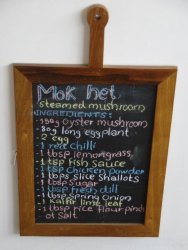 Mok het
steamed mushroom
INGREDIENTS:
- 150g oyster mushroom
- 80g long eggplant
- 2 egg
- 1 red chilli
- 1 tbsp lemongrass
- 1 tbsp fish sauce
- 1 tbsp chicken powder
- 1 tbps slice shallots
- 1 tbp sugar
- 1 tbsp fresh dill
- 1 tbps spring onion
- 1 kaffir lime leaf
- 1 tbsp rice flour pinch
of salt